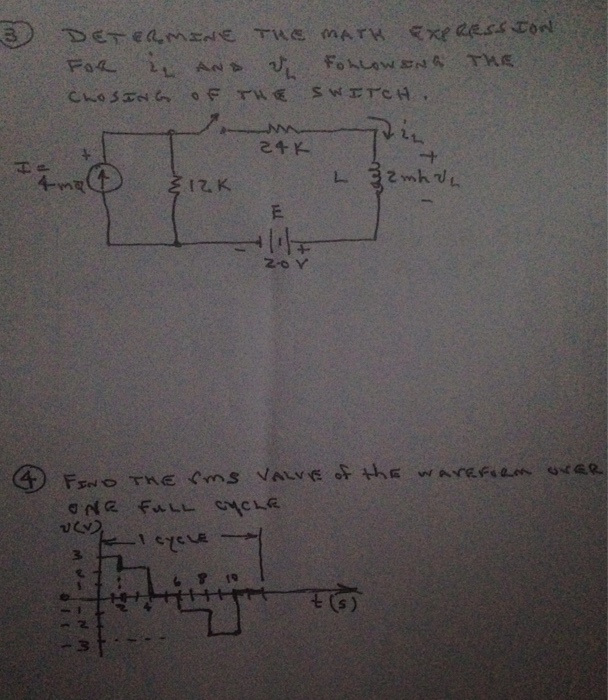 3 DETERMINE THE MATH EXPRESSION
FOR iL AND vL FOLLOWING THE
CLOSING OF THE SWITCH.
I =
4 ma
+
12 K
24 K
iL
L
+
2 mh vL
-
E
- +
20 V
4 FIND THE rms VALVE of the WAVEFORM OVER
ONE FULL CYCLE
v(v)
1 CYCLE
3
2
1
0
-1
-2
-3
2 4 6 8 10
t (s)